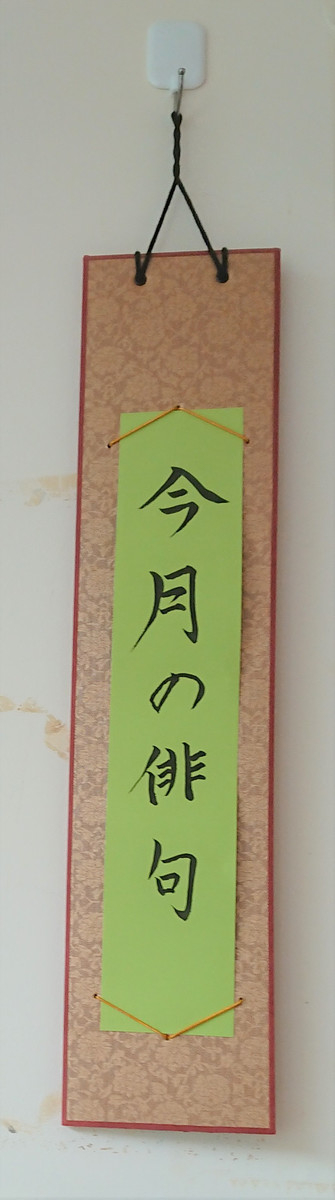 今月の俳句